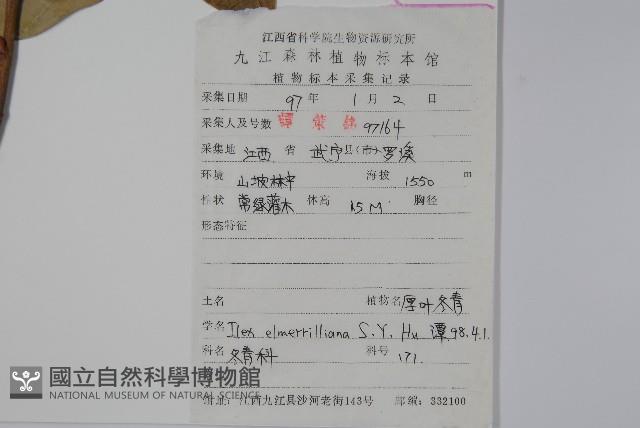 江西省科学院生物资源研究所
九江森林植物标本馆
植物标本采集记录
采集日期 97年 1月 2日
采集人及号数 譚策銘 97164
采集地 江西 省 武宁县(市) 罗溪
环境 山坡林中 海拔 1550 m
性状 常绿灌木 体高 1.5 M 胸径
形态特征
土名 植物名 厚叶冬青
学名 Ilex elmerrilliana S.Y. Hu 潭 98.4.1.
科名 冬青科 科号 171.
國立自然科學博物館
NATIONAL MUSEUM OF NATURAL SCIENCE
地址:江西九江县沙河老街143号 邮编:332100